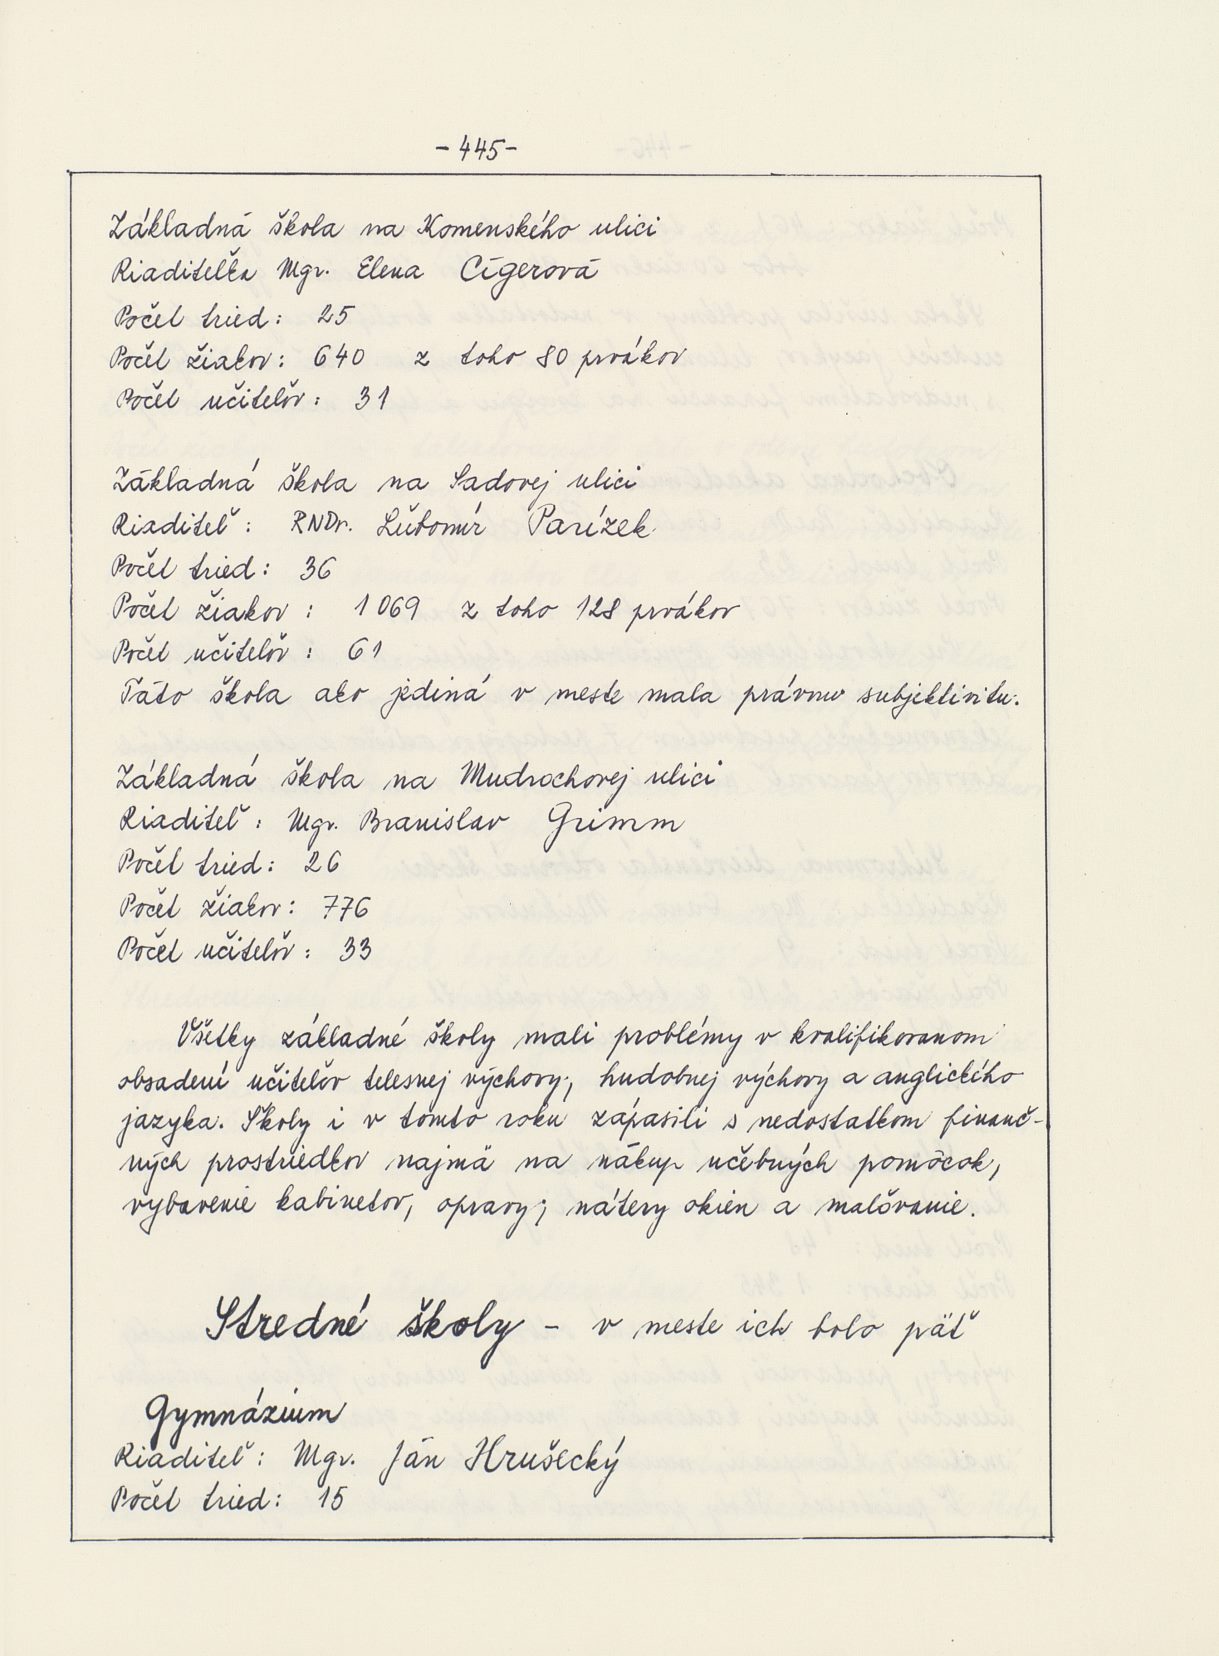 -445-
Základná škola na Komenského ulici
Riaditeľka Mgr. Elena Cígerová
Počet tried: 25
Počet žiakov: 640 z toho 80 prvákov
Počet učiteľov: 31
Základná škola na Sadovej ulici
Riaditeľ: RNDr. Ľubomír Parízek
Počet tried: 36
Počet žiakov: 1 069 z toho 128 prvákov
Počet učiteľov: 61
Táto škola ako jediná v meste mala právnu subjektivitu.
Základná škola na Mudrochovej ulici
Riaditeľ: Mgr. Branislav Grimm
Počet tried: 26
Počet žiakov: 776
Počet učiteľov: 33
Všetky základné školy mali problémy v kvalifikovanom
obsadení učiteľov telesnej výchovy, hudobnej výchovy a anglického
jazyka. Školy i v tomto roku zápasili s nedostatkom finanč-
ných prostriedkov najmä na nákup učebných pomôcok,
vybavenie kabinetov, opravy, nátery okien a maľovanie.
Stredné školy - v meste ich bolo päť
Gymnázium
Riaditeľ: Mgr. Ján Hrušecký
Počet tried: 15